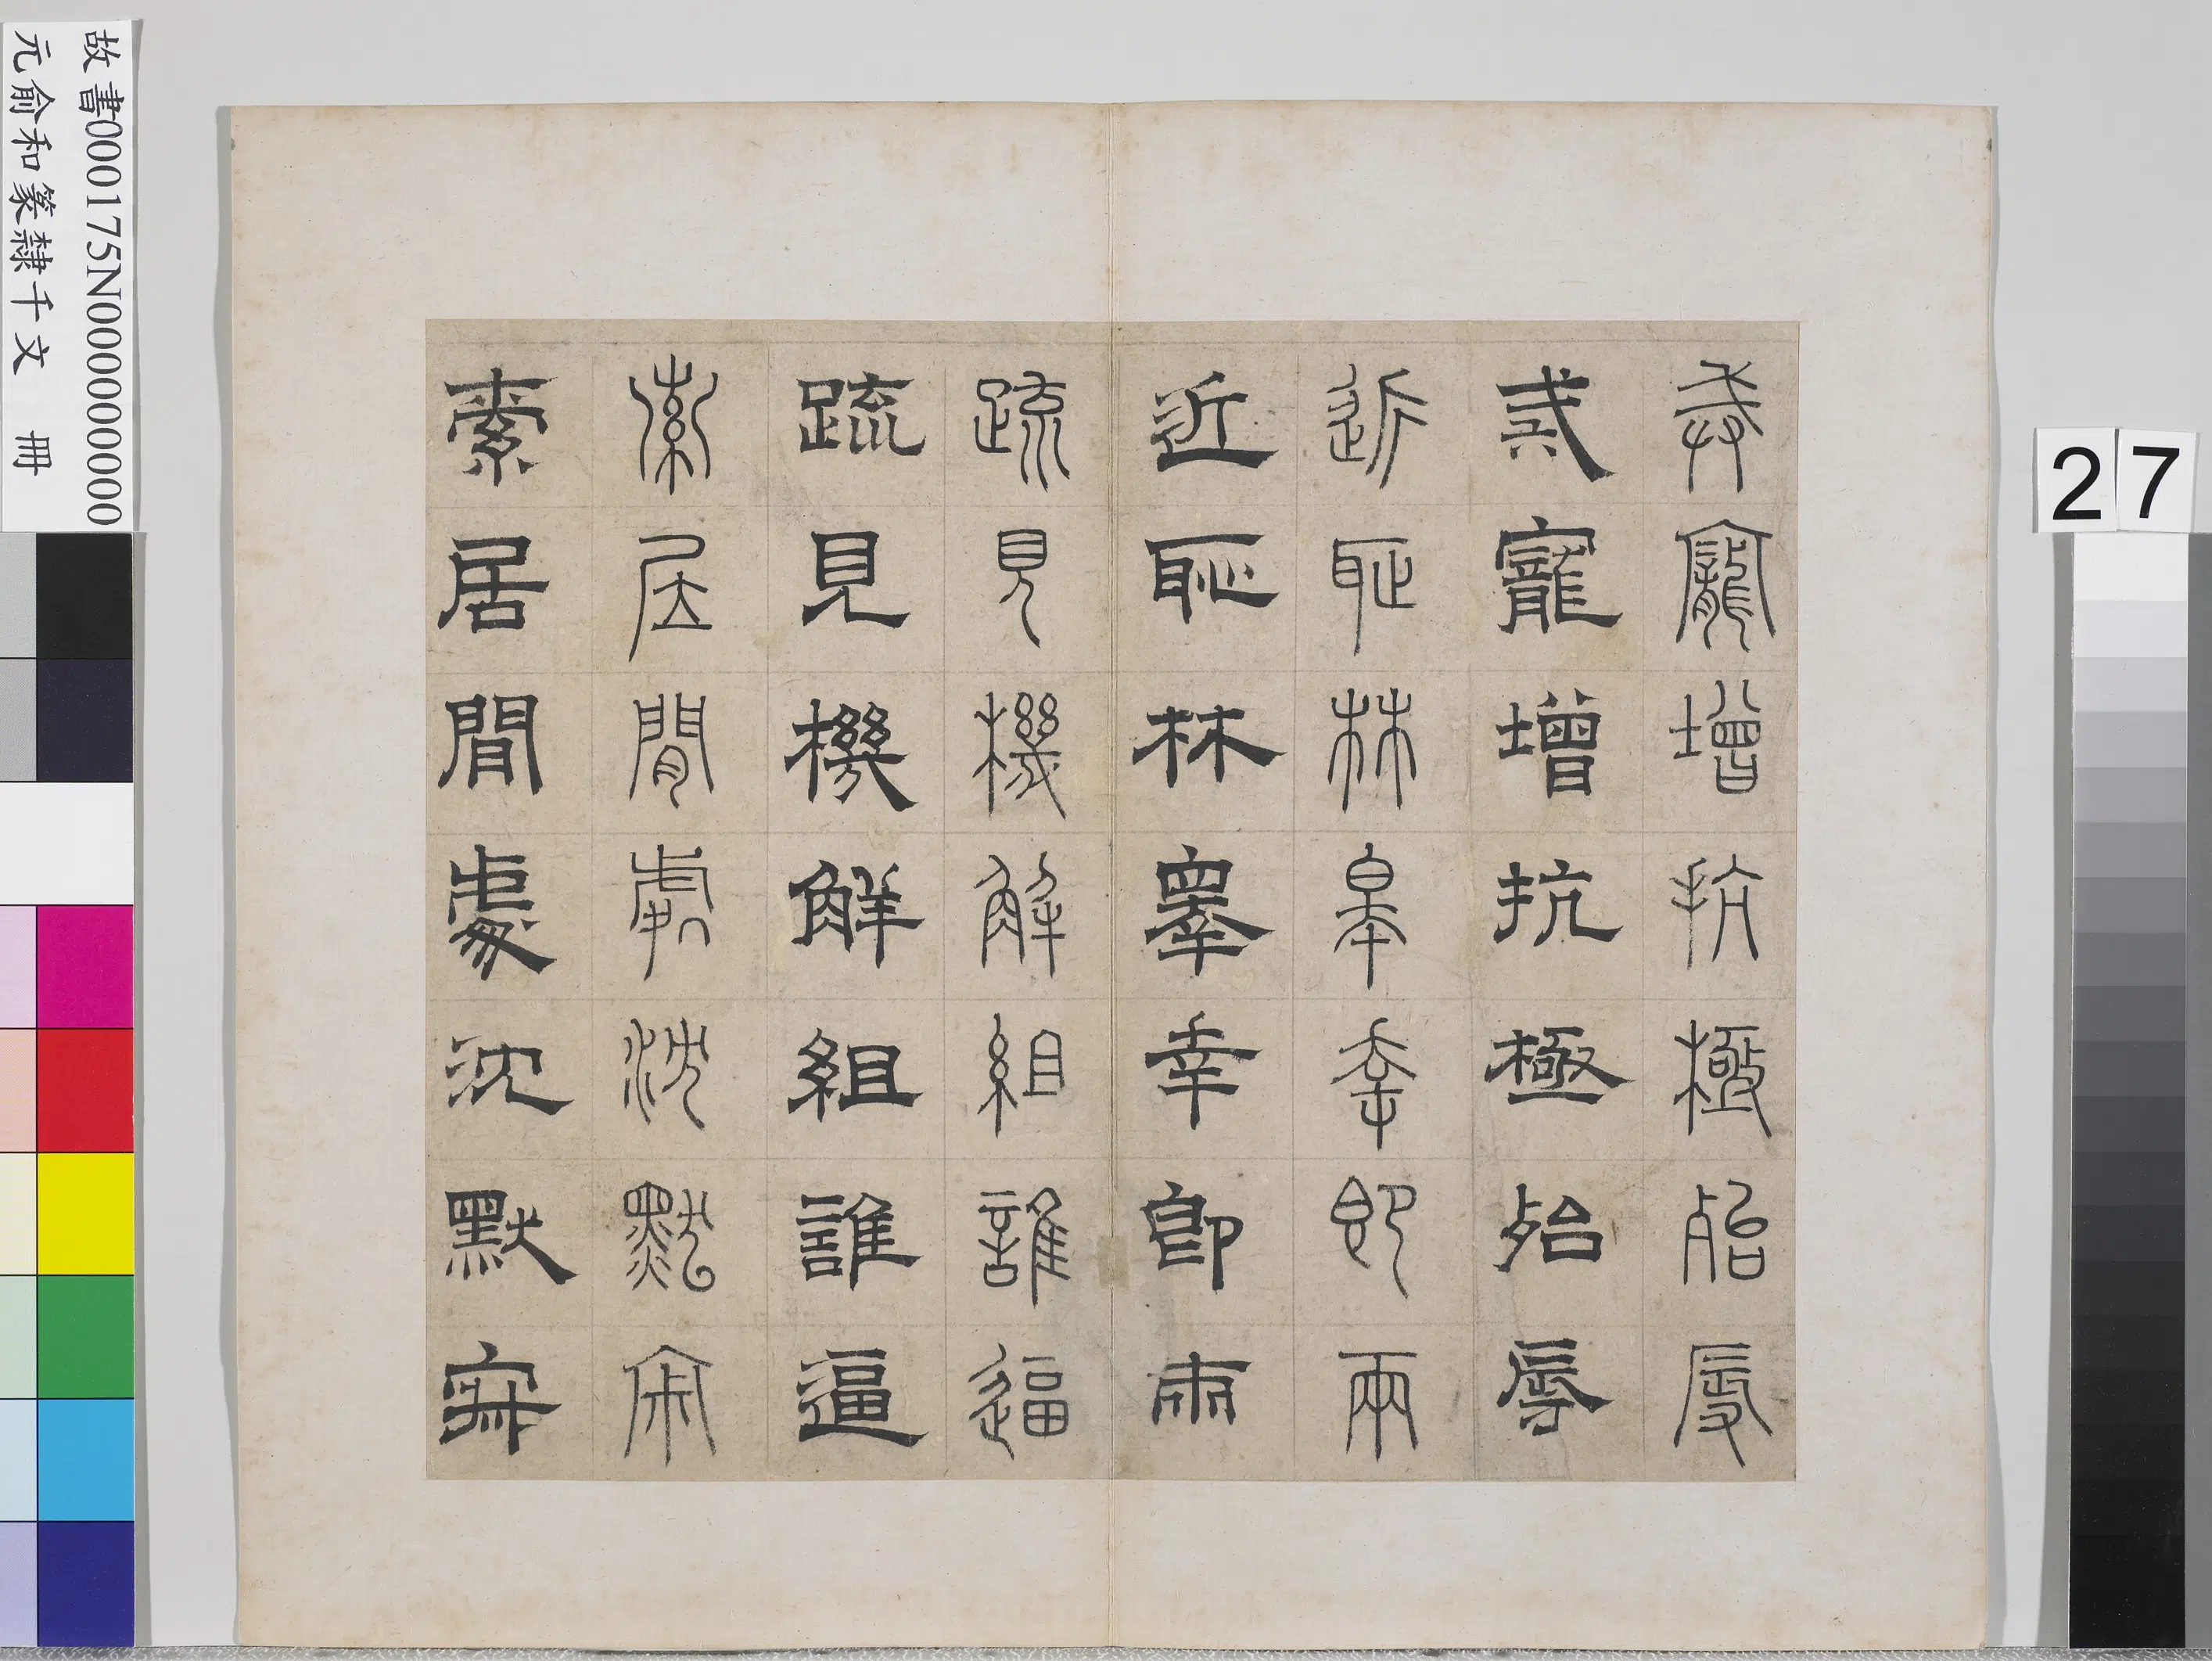 誡寵增抗極殆辱
誡寵增抗極殆辱
近恥林皋幸即兩
近恥林皋幸即兩
疏見機解組誰逼
疏見機解組誰逼
索居閒處沈默寂
索居閒處沈默寂
故書000175N000000000
元俞和篆隸千文 冊
27